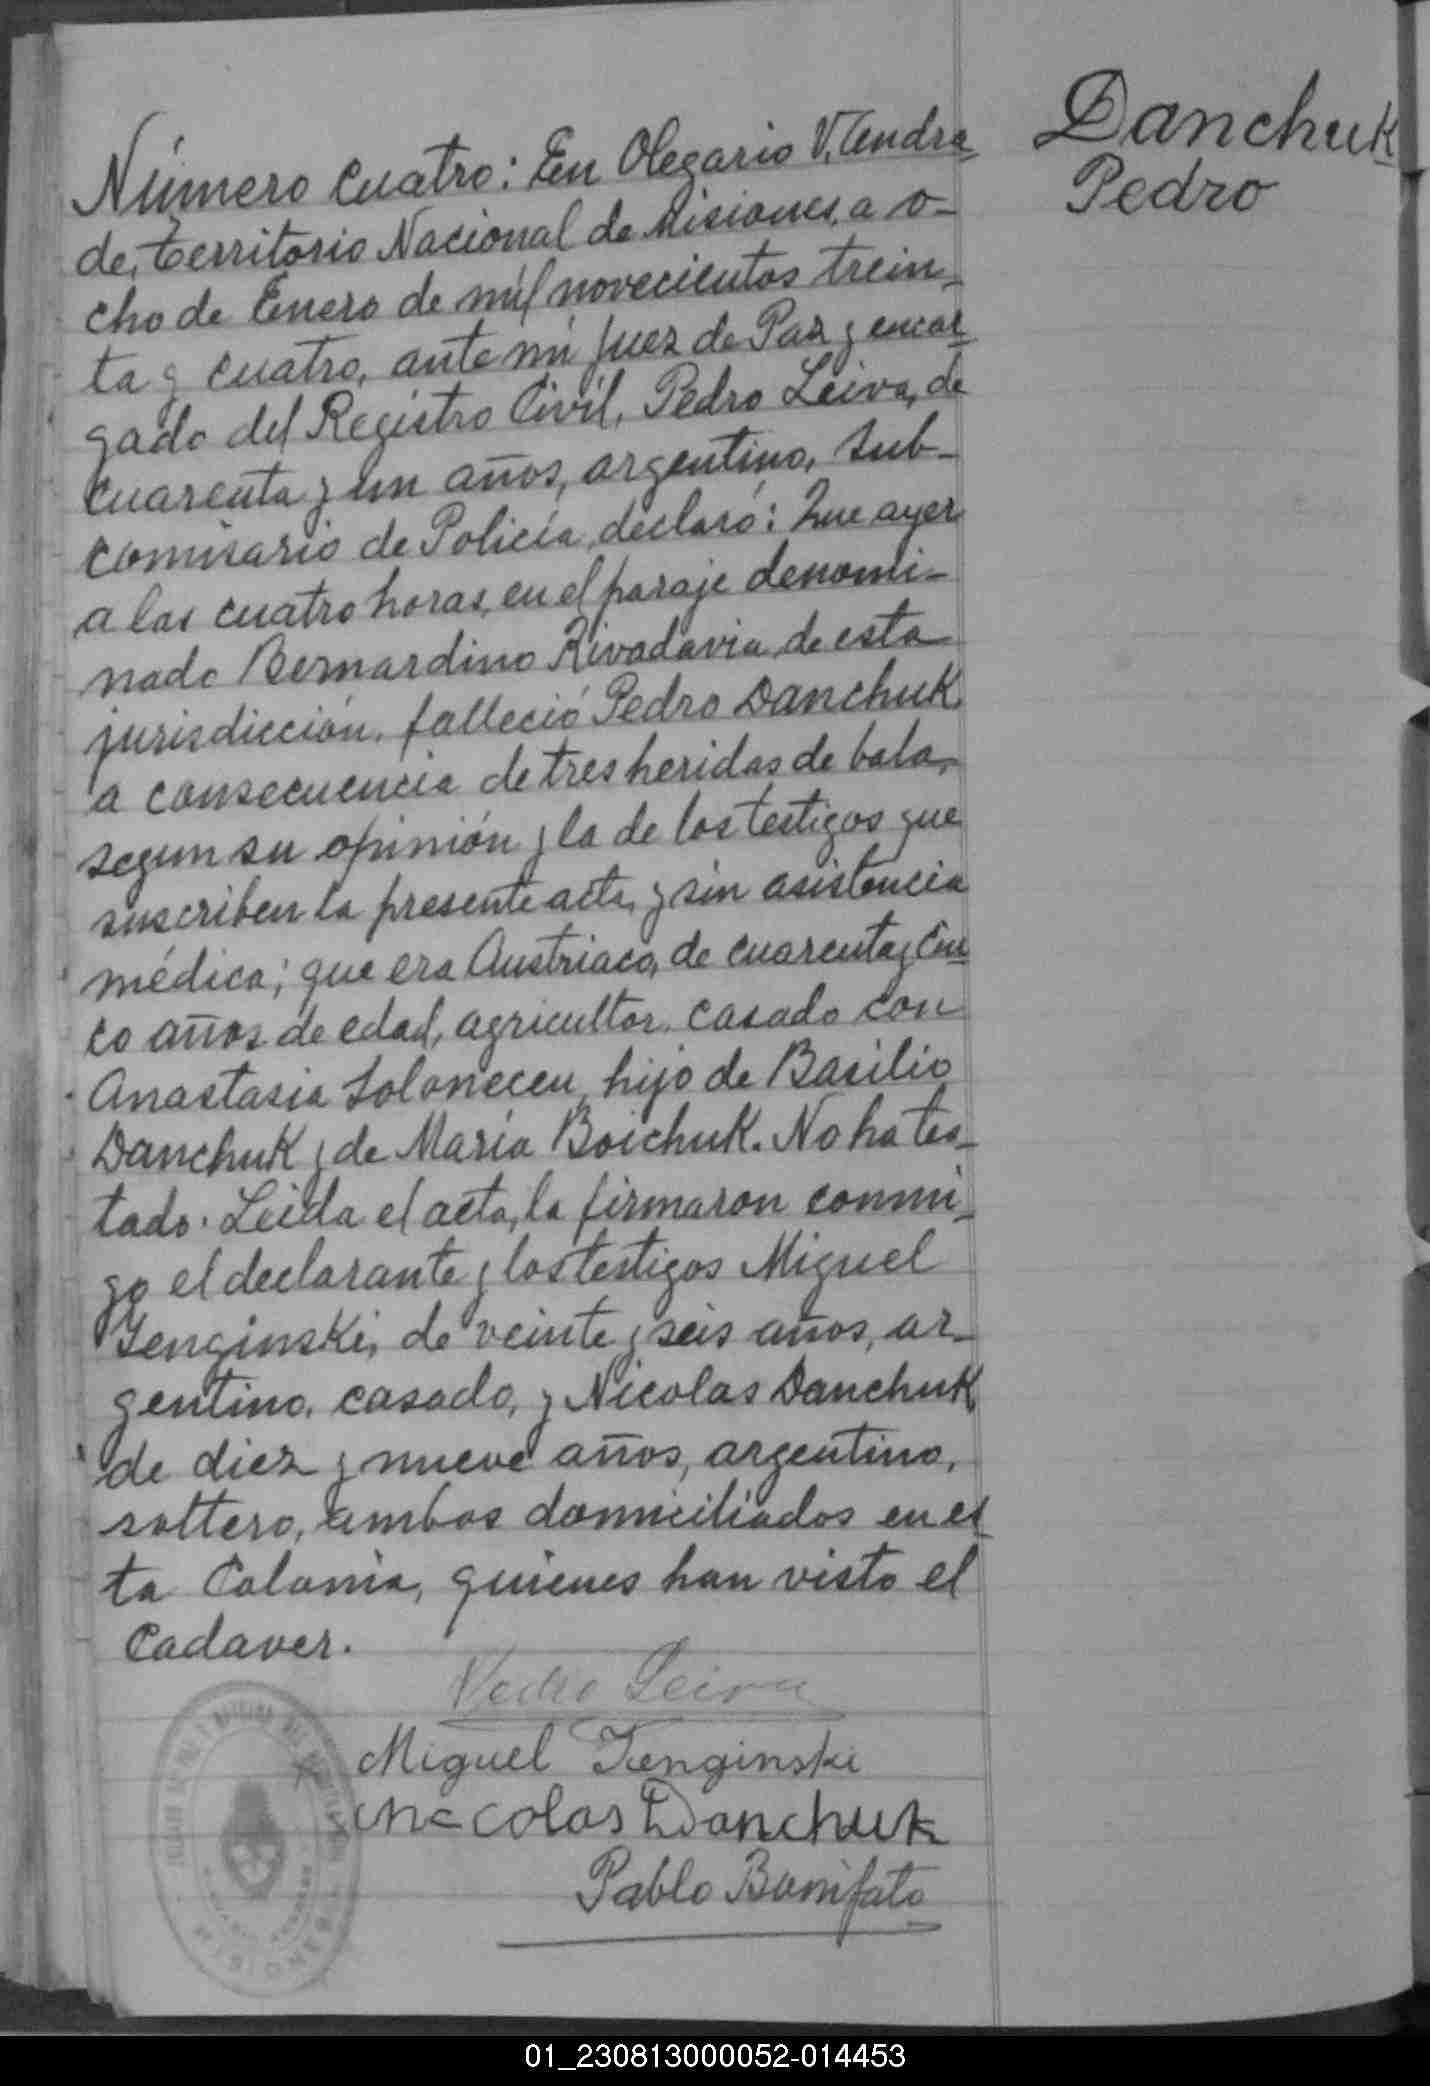 Danchuk
Pedro
Número Cuatro: En Olegario V. Andra-
de, territorio Nacional de Misiones, a o-
cho de Enero de mil novecientos trein-
ta y cuatro, ante mi Juez de Paz y encar-
gado del Registro Civil, Pedro Leiva, de
cuarenta y un años, argentino, Sub-
comisario de Policía, declaró: Que ayer
a las cuatro horas, en el paraje denomi-
nado Bernardino Rivadavia de esta
jurisdicción, falleció Pedro Danchuk
a consecuencia de tres heridas de bala,
segun su opinión y la de los testigos que
suscriben la presente acta, y sin asistencia
médica; que era Austriaco, de cuarenta y cin-
co años de edad, agricultor, casado con
Anastasia hijo de Basilio
Danchuk y de María Boichuk. No ha tes-
tado. Leida el acta, la firmaron conmi-
go el declarante y los testigos Miguel
de veinte y seis años, ar-
gentino, casado, y Nicolas Danchuk
de diez y nueve años, argentino,
soltero, ambos domiciliados en es-
ta Colonia, quienes han visto el
Cadaver.
Pedro Leiva
Miguel
Necolas Danchuk
Pablo Bonifato
MISIONES
01_230813000052-014453